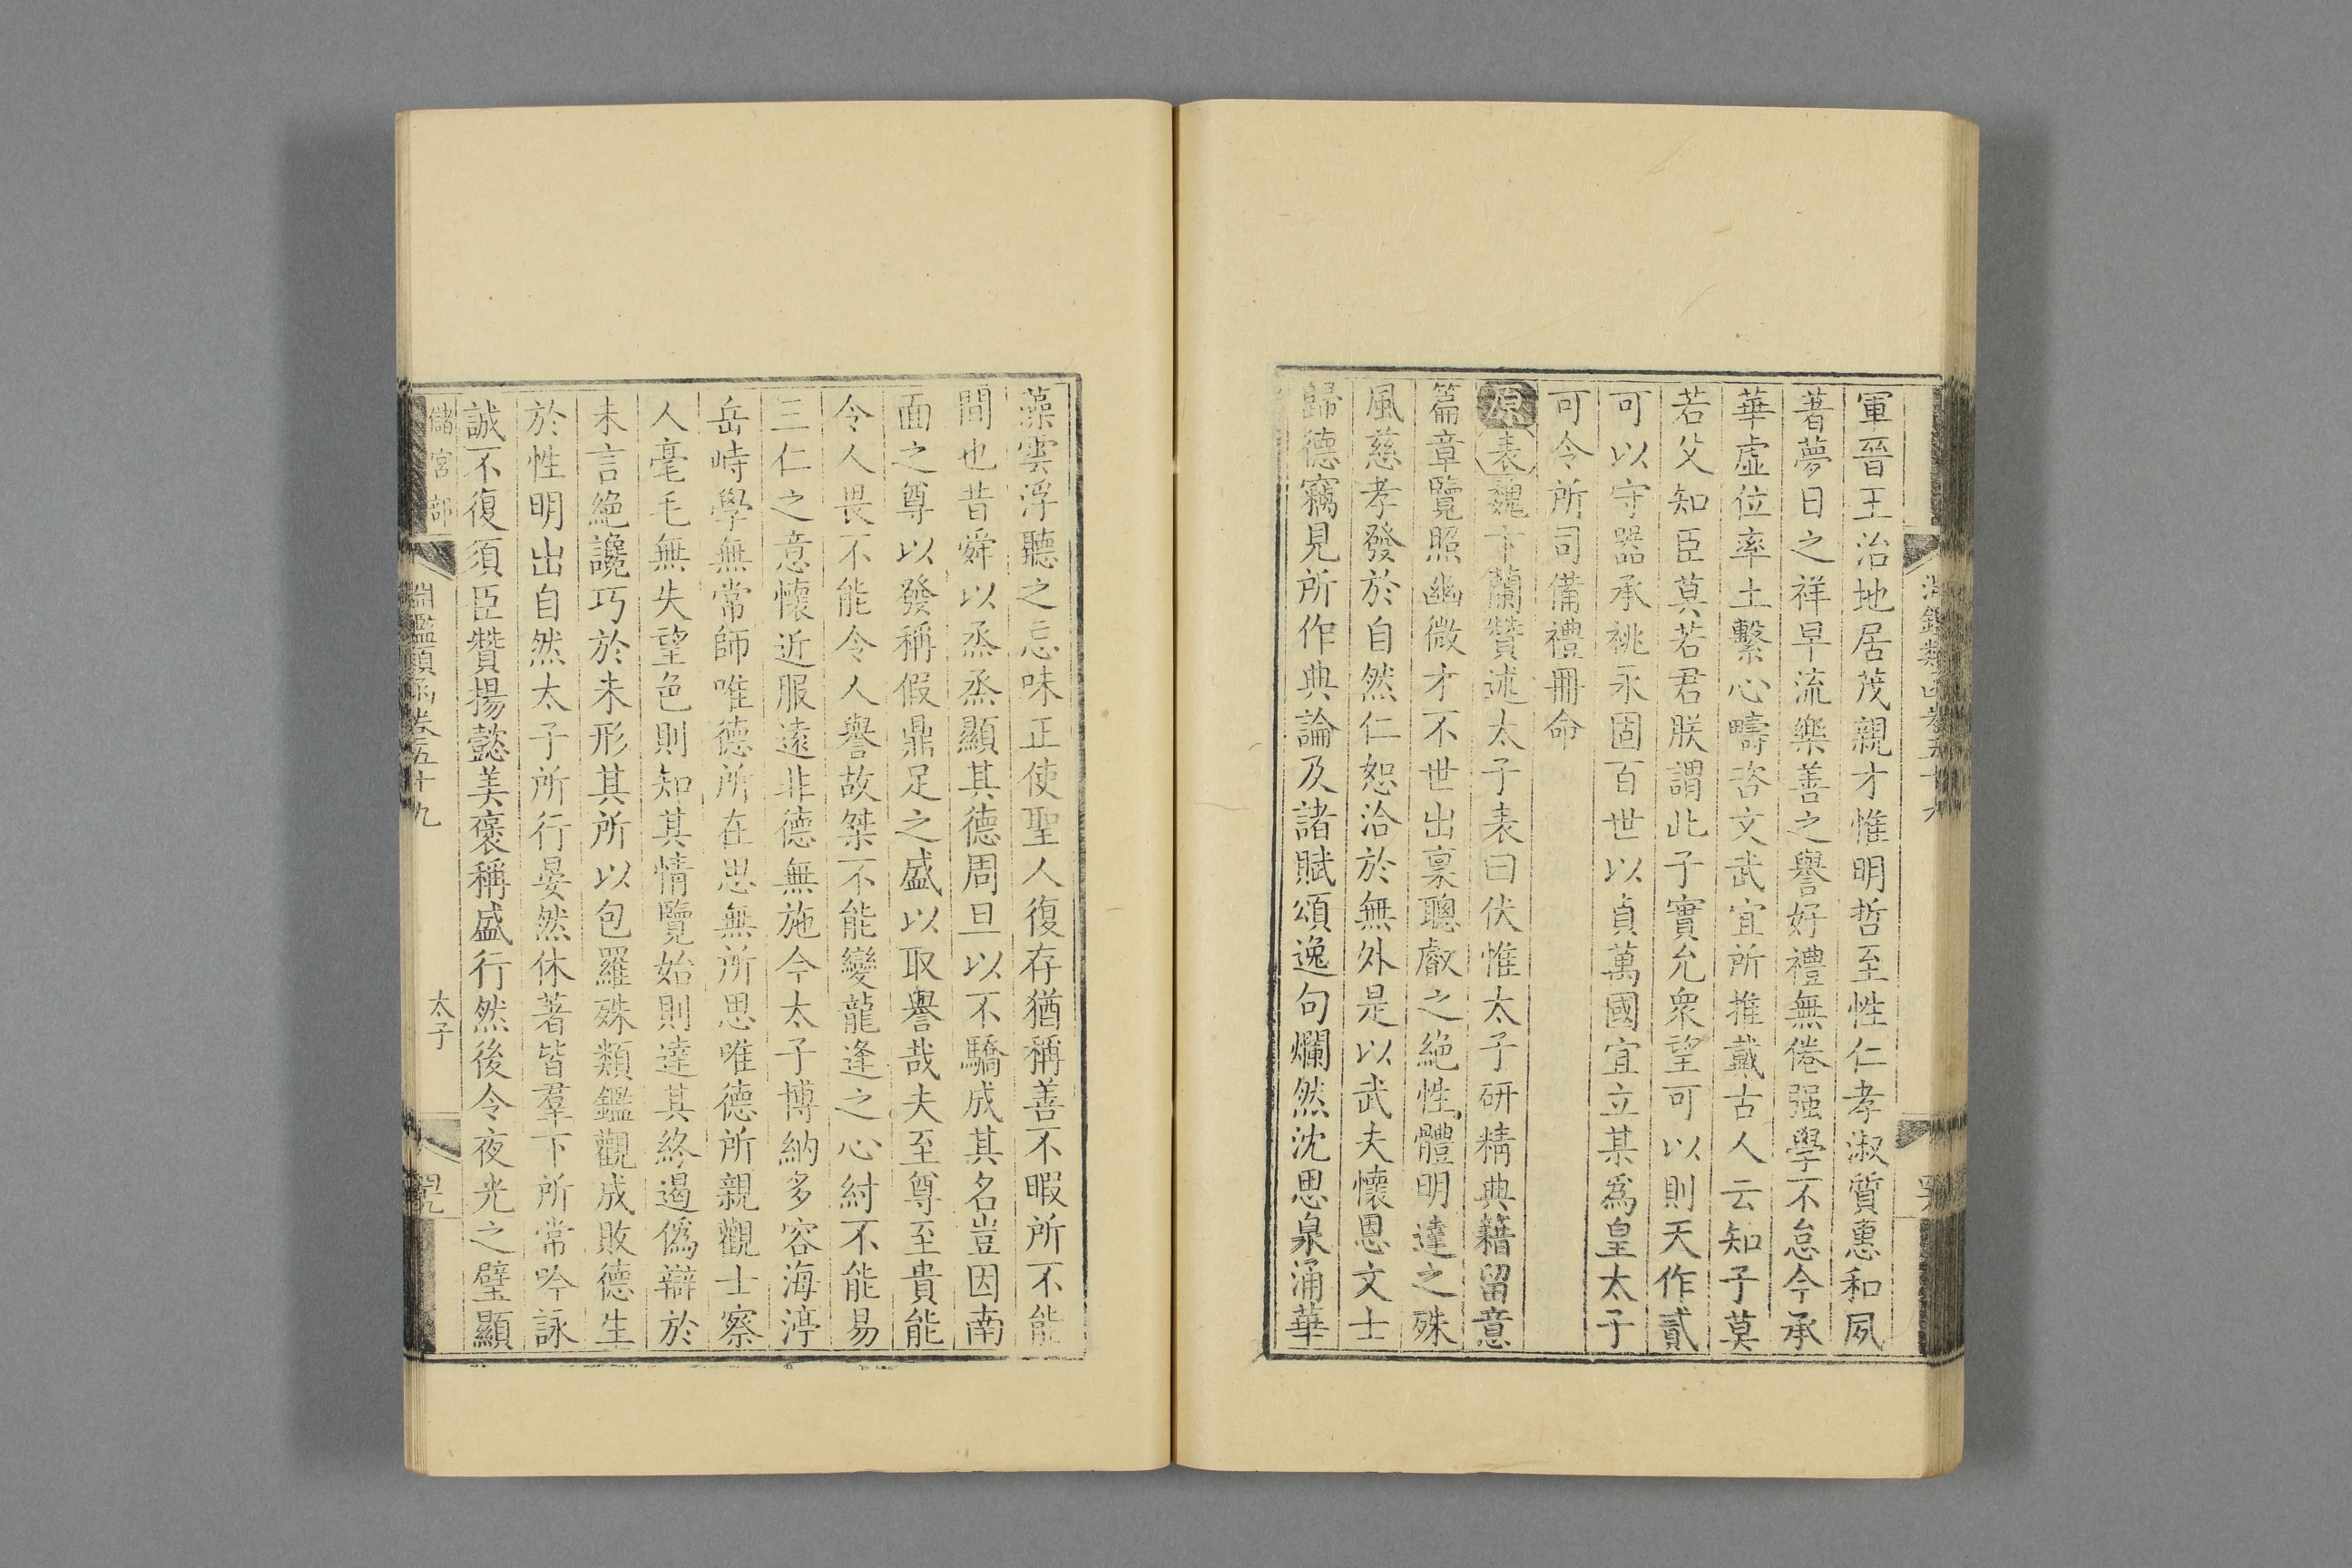 軍晉王治地居茂親才惟明哲至性仁孝淑質惠和夙
著夢日之祥早流樂善之譽好禮無倦强學不怠今承
華虛位率土繫心疇咨文武宜所推戴古人云知子莫
若父知臣莫若君朕謂此子實允衆望可以則天作貳
可以守器承祧永固百世以貞萬國宜立某爲皇太子
可令所司備禮冊命
原表魏卞蘭贊述太子表曰伏惟太子研精典籍留意
篇章覽照幽微才不世出稟聰叡之絶性體明達之殊
風慈孝發於自然仁恕洽於無外是以武夫懷恩文士
歸德竊見所作典論及諸賦頌逸句爛然沈思泉涌華
藻雲浮聽之忘味正使聖人復存猶稱善不暇所不能
間也昔舜以烝烝顯其德周旦以不驕成其名豈因南
面之尊以發稱假鼎足之盛以取譽哉夫至尊至貴能
令人畏不能令人譽故桀不能變龍逢之心紂不能易
三仁之意懷近服遠非德無施今太子博納多容海渟
岳峙學無常師唯德所在思無所思唯德所親觀士察
人毫毛無失望色則知其情覽始則達其終遏僞辯於
未言絶讒巧於未形其所以包羅殊類鑑觀成敗德生
於性明出自然太子所行晏然休著皆羣下所常吟詠
誠不復須臣贊揚懿美褒稱盛行然後令夜光之璧顯
儲宮部
淵鑑類函卷五十九
太子